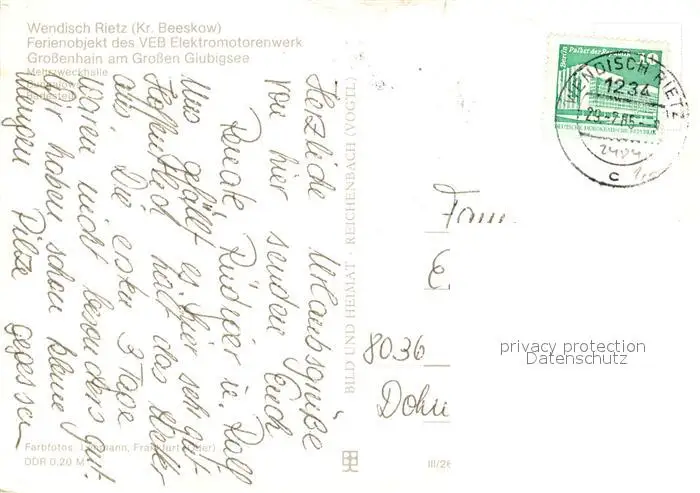 Wendisch Rietz (Kr. Beeskow)
Ferienobjekt des VEB Elektromotorenwerk
Großenhain am Großen Glubigsee
Mehrzweckhalle
Herzliche Urlaubsgrüße
von hier senden Euch
Beate, Rüdiger u. Ralf
Uns gefällt es hier sehr gut.
Hoffentlich hält das Wetter
aus. Die ersten 3 Tage
waren nicht besonders gut.
Wir haben schon kleine
Mengen Pilze gegessen
Farbfotos: Frankfurt (Oder)
DDR 0,20 M
BILD UND HEIMAT · REICHENBACH (VOGTL)
III/26
Berlin, Palast der Republik
10
DEUTSCHE DEMOKRATISCHE REPUBLIK
WENDISCH RIETZ
1234
c
Fam.
E
8036
privacy protection
Datenschutz